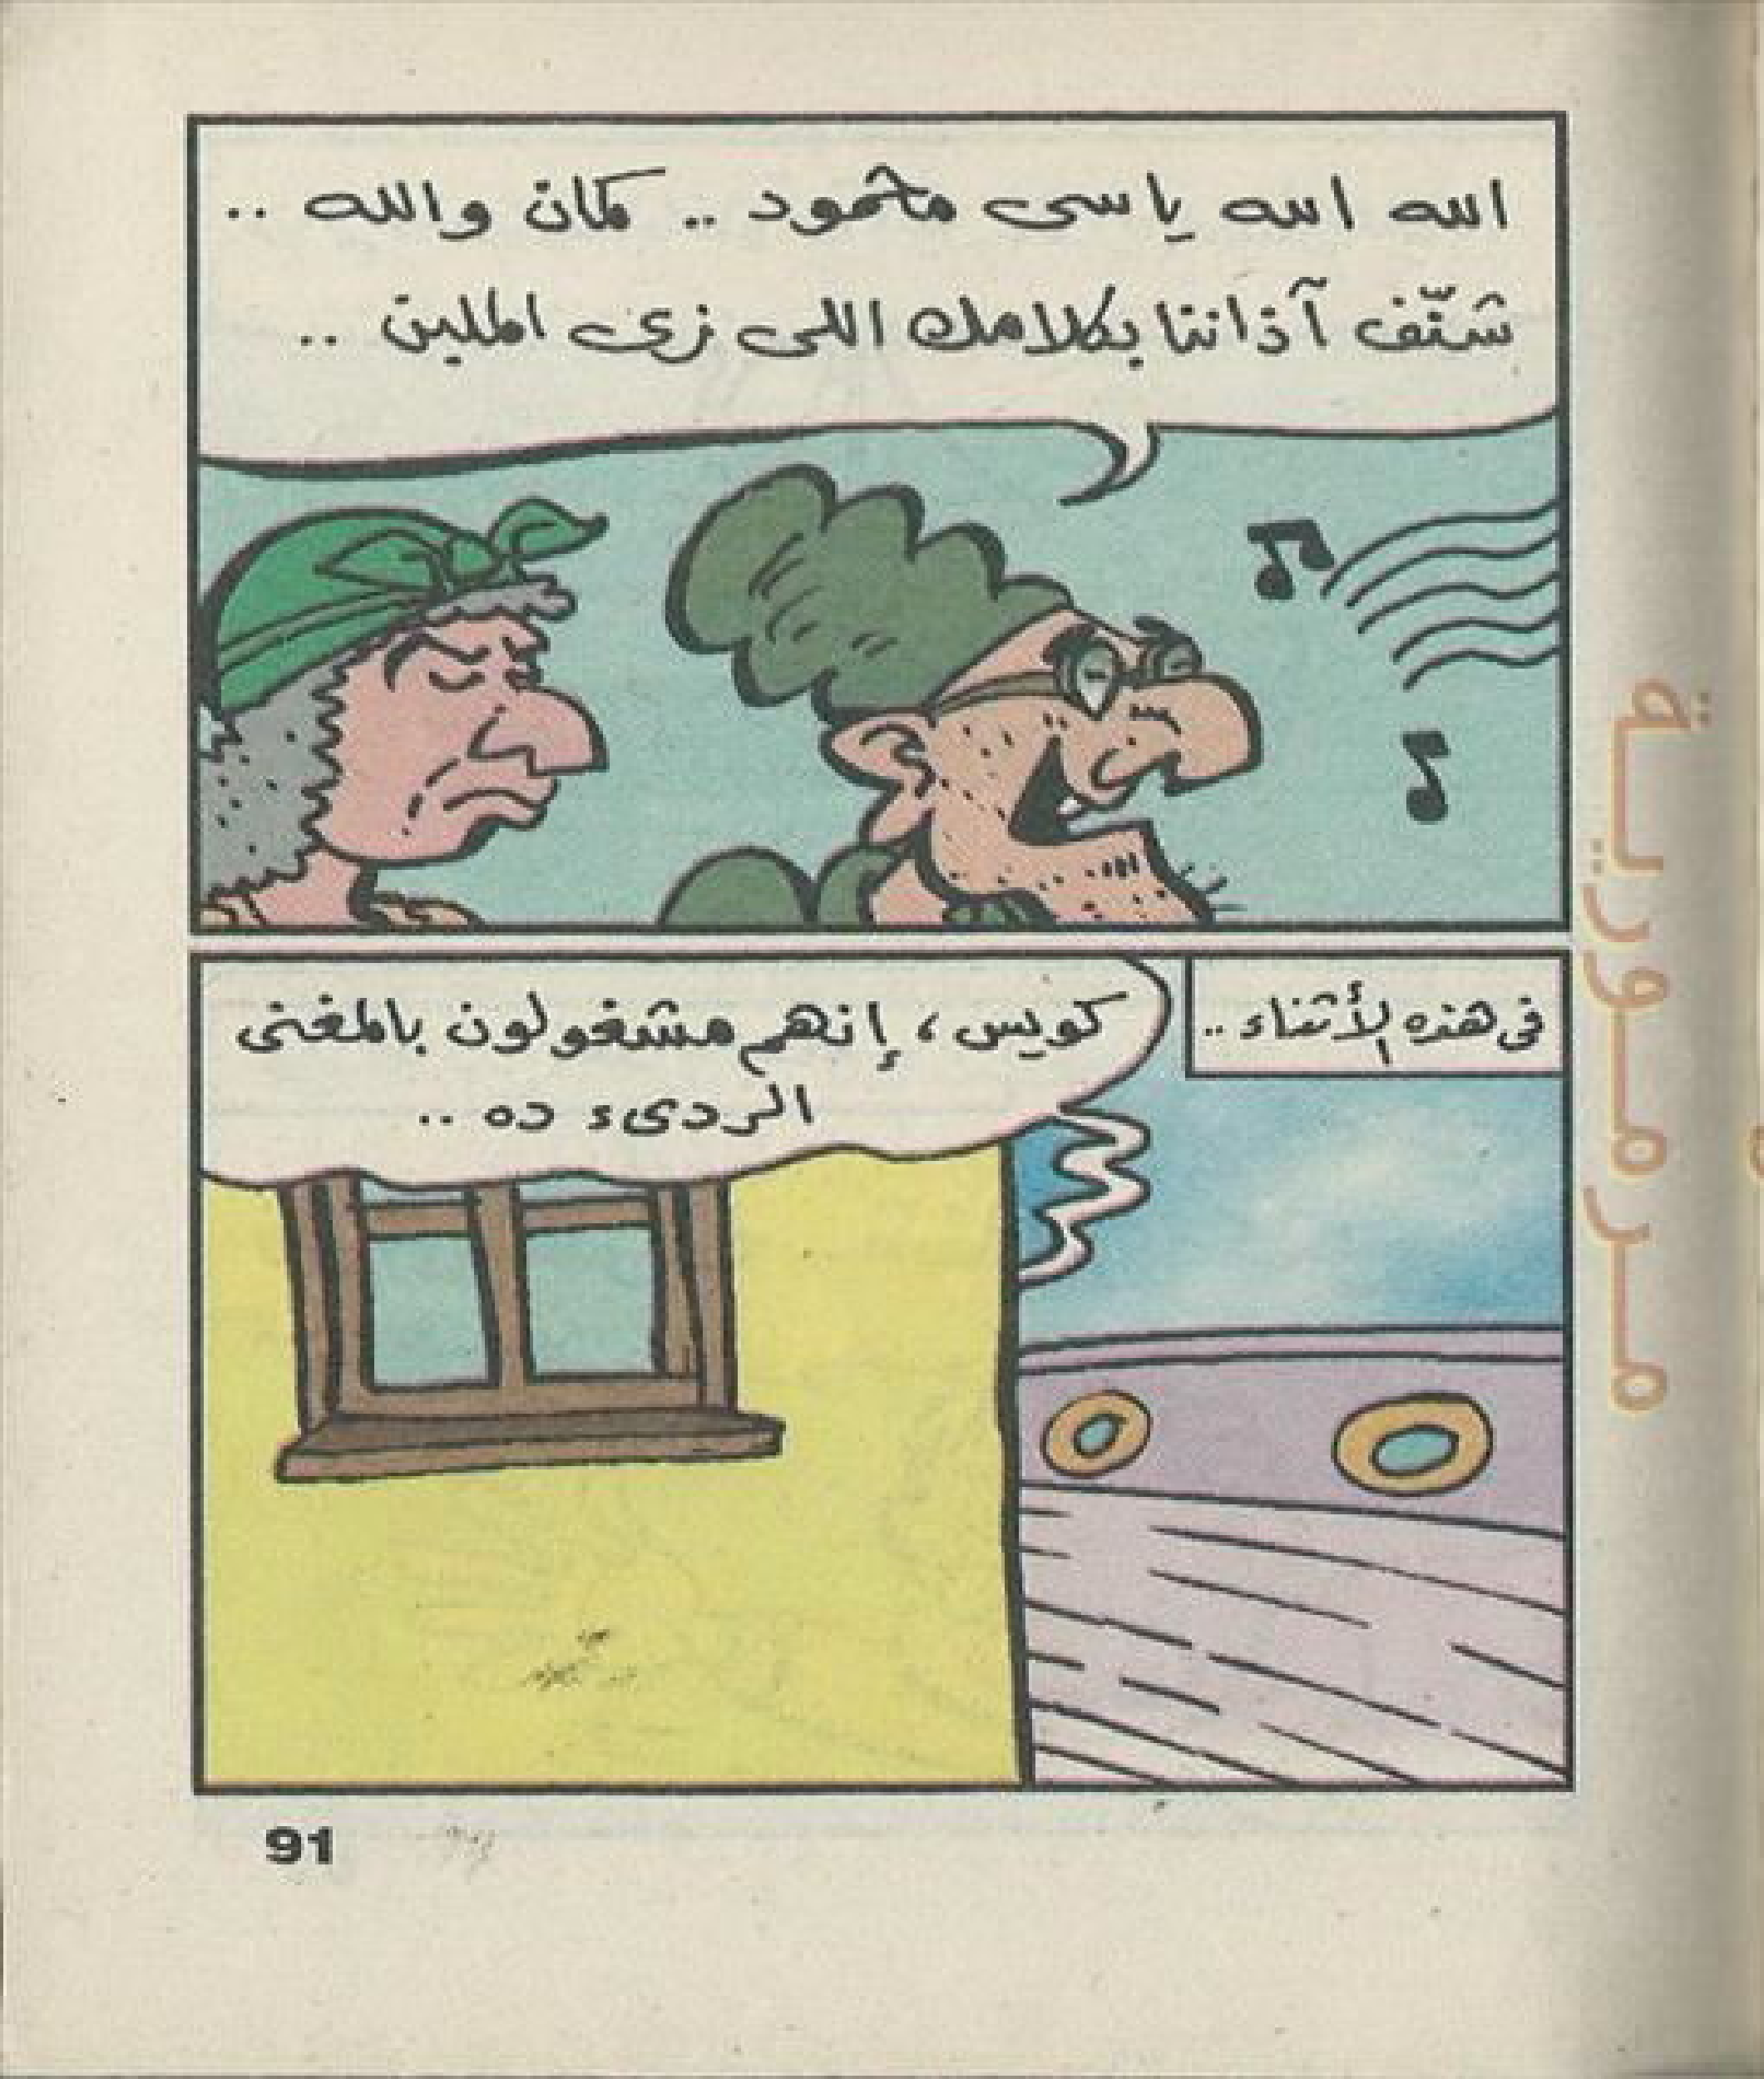 الله الله ياسى محمود .. كمان والله ..
شنّف آذاننا بكلامك اللى زى الملبن ..
فى هذه الأثناء ..
كويس ، إنهم مشغولون بالمغنى
الردىء ده ..
91
مرمورية